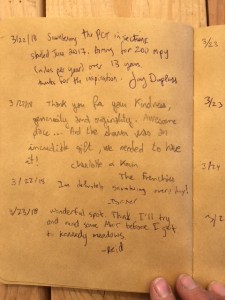 3/22/18 Smelering the PCT in sections
started June 2017. Going for 200 mpy
(miles per year) over 13 years.
Thanks for the inspiration. Jay
3/22/18 Thank you for your Kindness,
generosity and originality. Awesome
place... And the shower was an
incredible gift, we needed to have
it!
Charlotte & Kevin
The Frenchies
3/22/18 I'm definitely smiling
3/23/18 wonderful spot. Think I'll try
and read some Muir before I get
to kennedy meadows.
-Reid
3/23
3/23
3/24